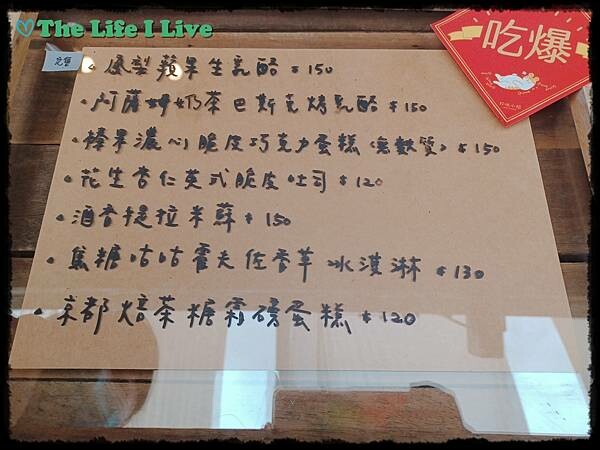 ♡The Life I Live
吃爆
完售
• 反烤蘋果生乳酪 $150
• 阿薩姆奶茶巴斯克烤乳酪 $150
• 榛果濃心脆皮巧克力蛋糕(無麩質) $150
• 花生杏仁英式脆皮吐司 $120
• 酒香提拉米蘇 $150
• 焦糖咕咕霍夫佐香草冰淇淋 $130
• 京都焙茶糖霜磅蛋糕 $120